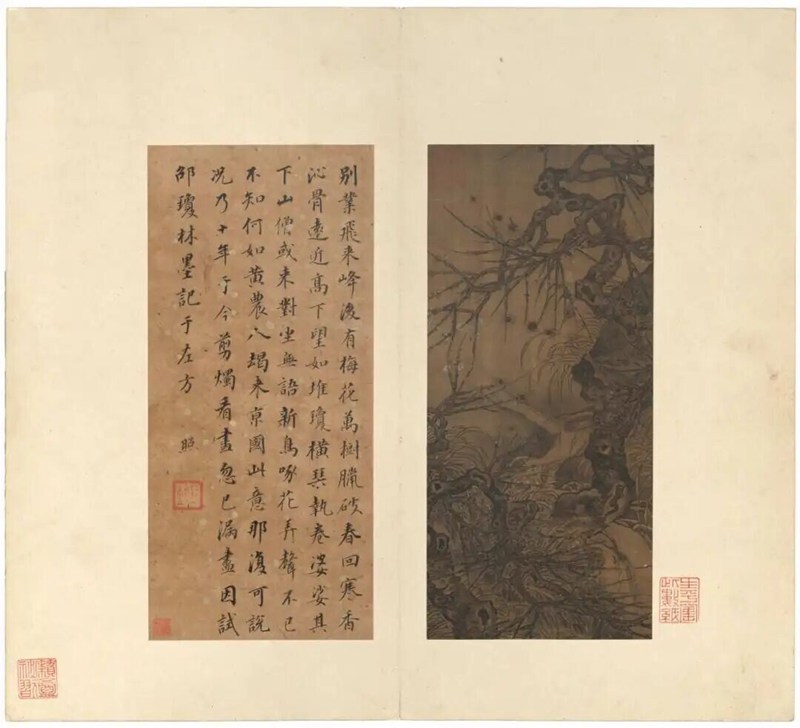 別業飛來峰後有梅花萬樹臘破春回寒香
沁骨遠近高下望如堆瓊橫琴執卷婆娑其
下山僧或來對坐無語新鳥啄花弄聲不已
不知何如黃農人朅來京國此意那復可說
况乃十年于今剪燭看畫忽已漏盡因試
邵瓊林墨記于左方 照